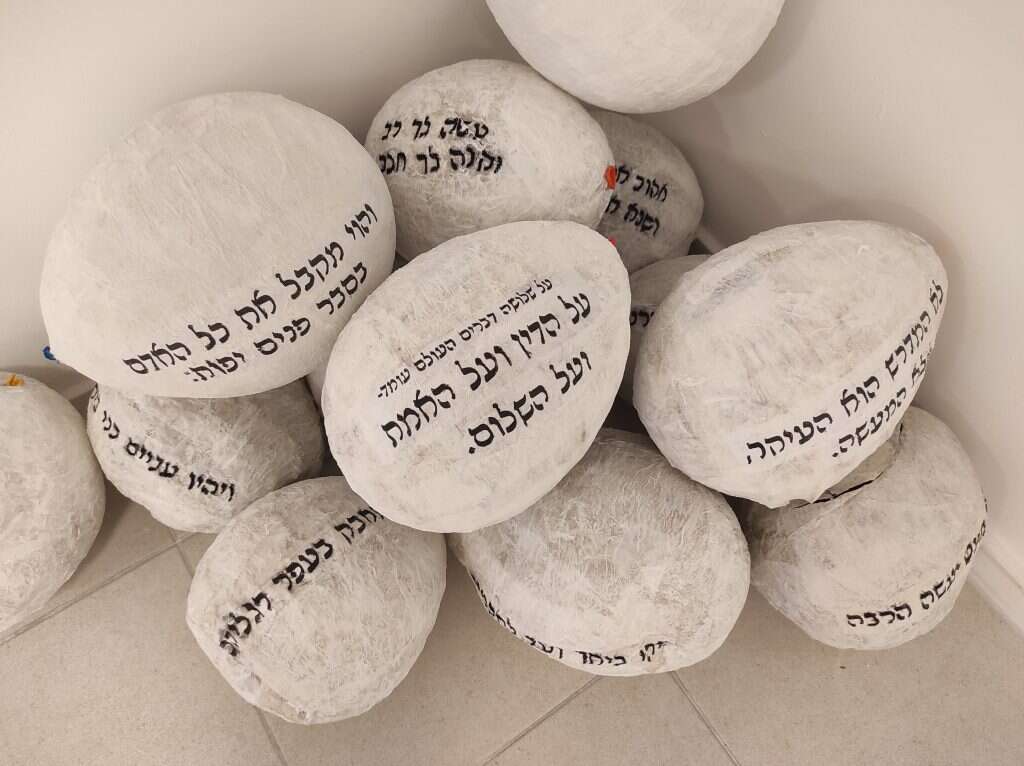 עשה לך רב
וקנה לך חבר
אהוב
ושנא
והוי מקבל את כל האדם
בסבר פנים יפות.
על שלושה דברים העולם עומד-
על הדין ועל האמת
ועל השלום.
לא המדרש הוא העיקר.
המעשה.
ויהיו עניים בני
בעפר רגליהם
ביחד ועד
יעשה הרבה